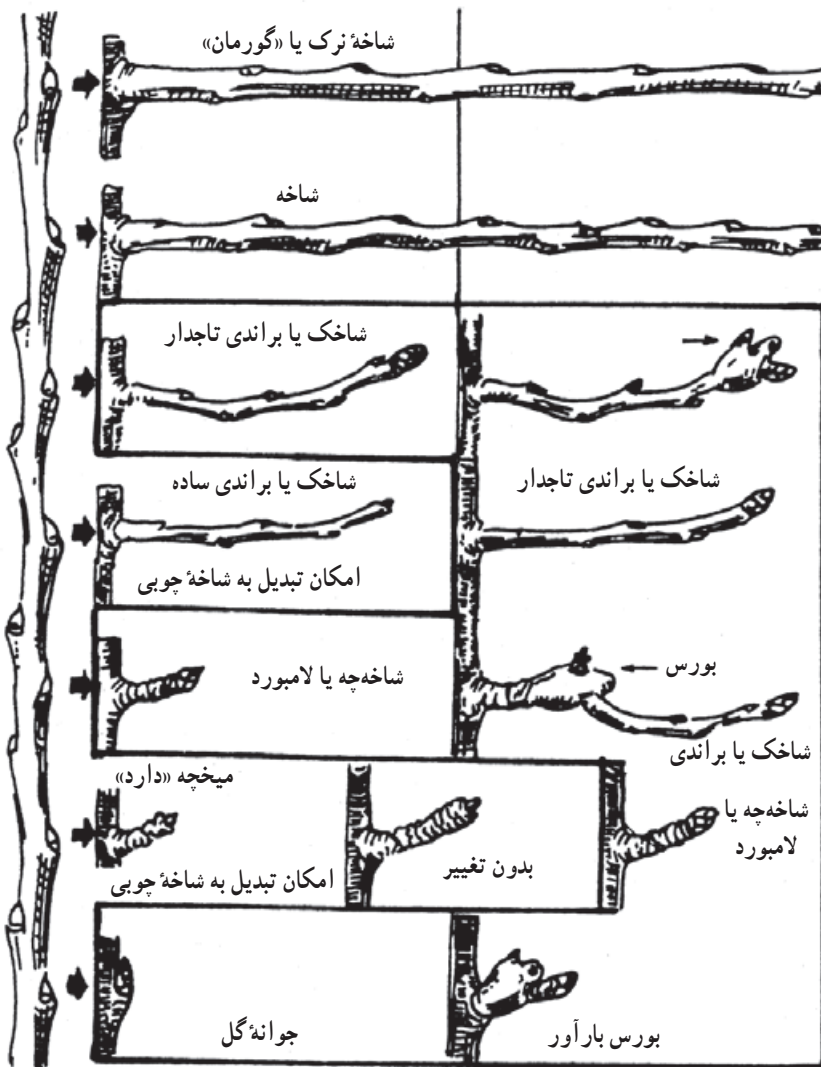 شاخهٔ نرک یا «گورمان»
شاخه
شاخک یا براندی تاجدار
شاخک یا براندی ساده
شاخک یا براندی تاجدار
امکان تبدیل به شاخهٔ چوبی
شاخه‌چه یا لامبورد
بورس
شاخک یا براندی
میخچه «دارد»
شاخه‌چه یا
لامبورد
بدون تغییر
امکان تبدیل به شاخهٔ چوبی
جوانهٔ گل
بورس بارآور